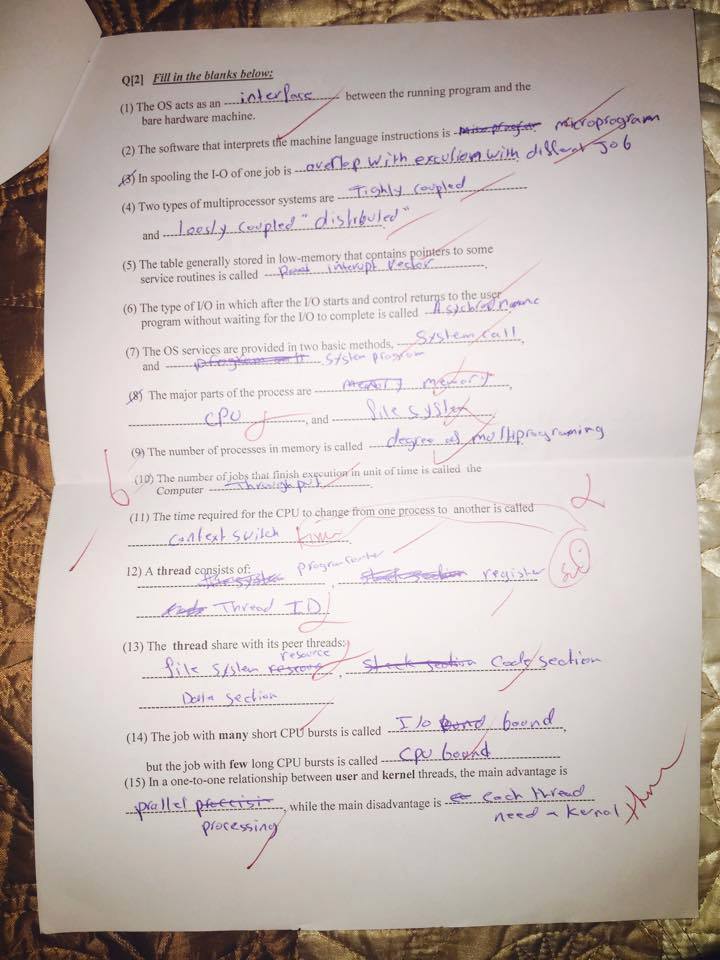 Q[2] Fill in the blanks below:
(1) The OS acts as an interface between the running program and the
bare hardware machine.
(2) The software that interprets the machine language instructions is microprogram
(3) In spooling the I-O of one job is overlap with excution with different Job
(4) Two types of multiprocessor systems are Tighly coupled
and loosly coupled "distrbuled"
(5) The table generally stored in low-memory that contains pointers to some
service routines is called interupt vector.
(6) The type of I/O in which after the I/O starts and control returns to the user
program without waiting for the I/O to complete is called
(7) The OS services are provided in two basic methods, System call,
and System program
(8) The major parts of the process are memory,
CPU, and file system
(9) The number of processes in memory is called degree of multiprograming
(10) The number of jobs that finish execution in unit of time is called the
Computer Throughput.
(11) The time required for the CPU to change from one process to another is called
context switch time
12) A thread consists of:
program counter, register
Thread ID
(13) The thread share with its peer threads:
file system resource, Code section
Data section
(14) The job with many short CPU bursts is called I/o bound,
but the job with few long CPU bursts is called CPU bound
(15) In a one-to-one relationship between user and kernel threads, the main advantage is
prallel processing, while the main disadvantage is each thread
need a Kernal
6
2